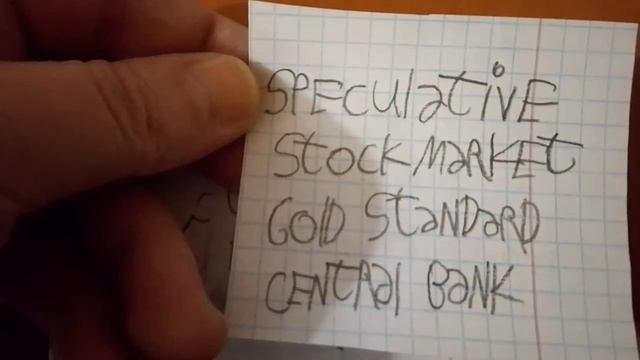 SPECULATIVE
STOCK MARKET
GOLD STANDARD
CENTRAL BANK